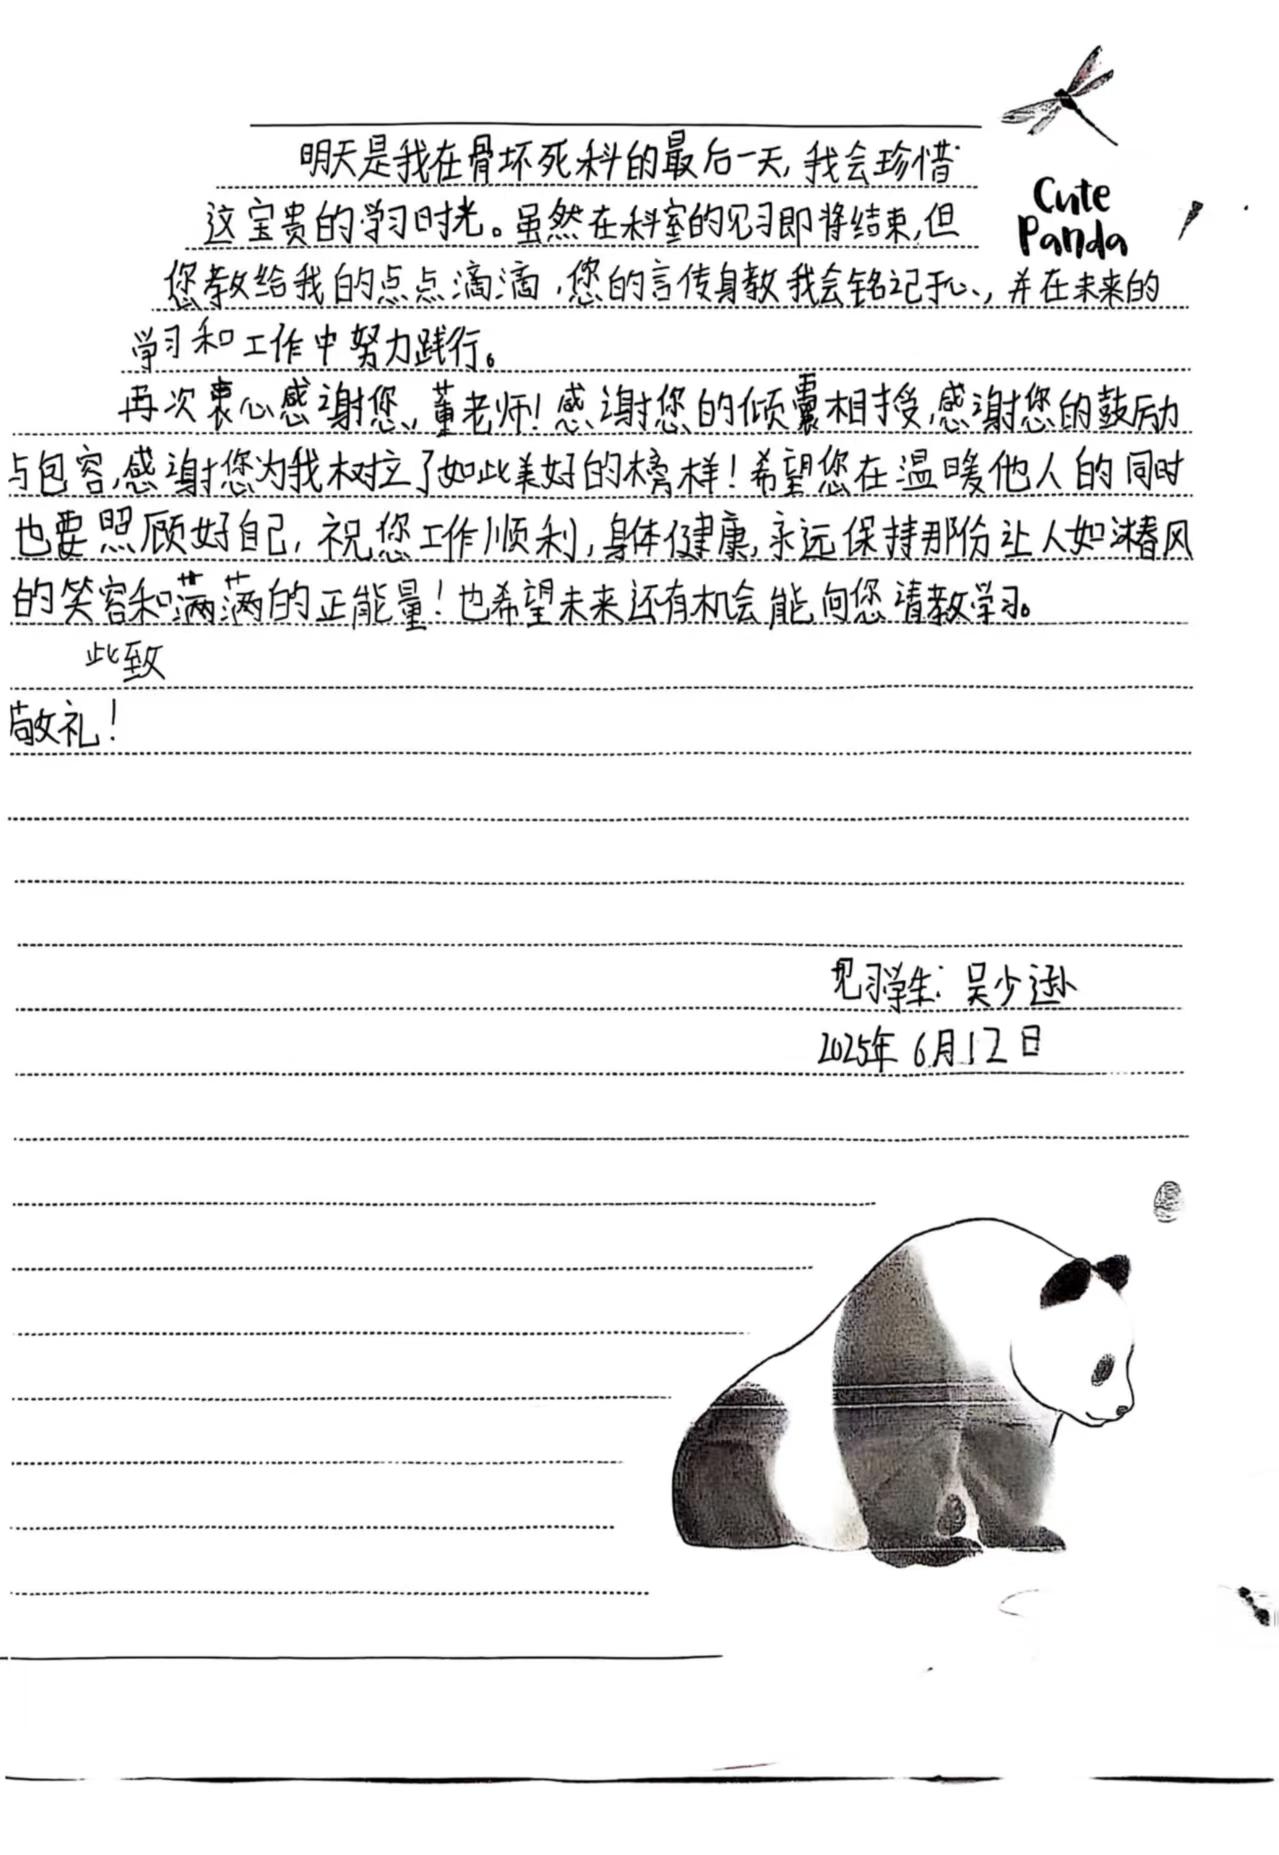 明天是我在骨坏死科的最后一天,我会珍惜
Cute
Panda
这宝贵的学习时光。虽然在科室的见习即将结束,但
您教给我的点点滴滴,您的言传身教我会铭记于心,并在未来的
学习和工作中努力践行。
再次衷心感谢您,董老师!感谢您的倾囊相授,感谢您的鼓励
与包容,感谢您为我树立了如此美好的榜样!希望您在温暖他人的同时
也要照顾好自己,祝您工作顺利,身体健康,永远保持那份让人如沐春风
的笑容和满满的正能量!也希望未来还有机会能向您请教学习。
此致
敬礼!
见习学生:吴少逊
2025年6月12日